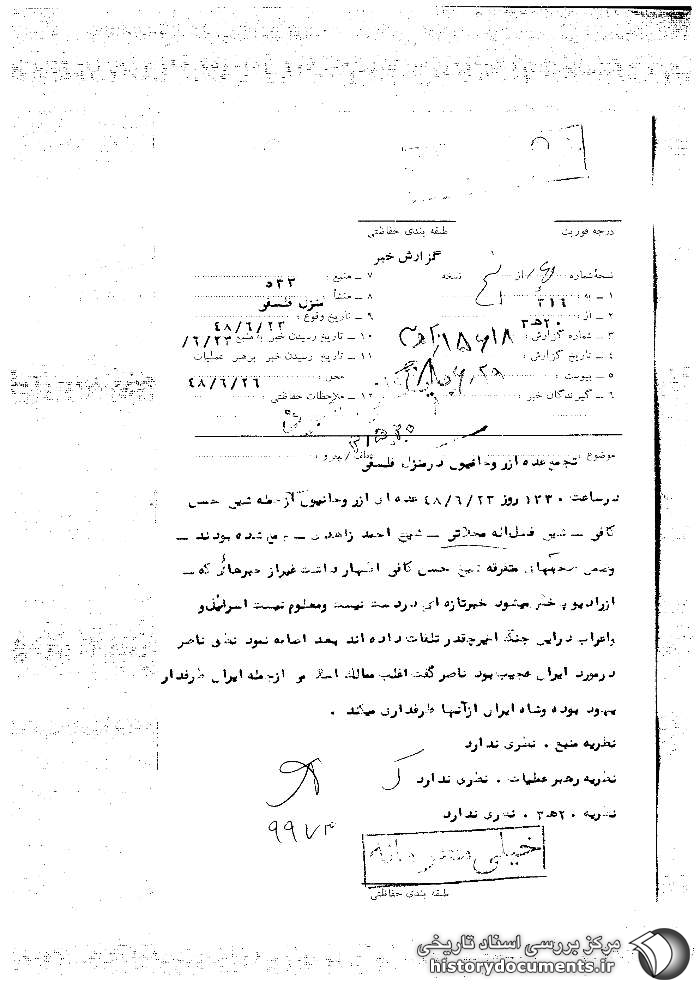 درجه فوریت
طبقه بندی حفاظتی
گزارش خبر
نسخه شماره از نسخه
۱ ـ به : ۳۱۶
۲ ـ از : ۲۰هـ۳
۳ ـ شماره گزارش :
۴ ـ تاریخ گزارش :
۵ ـ پیوست :
۶ ـ گیرندگان خبر :
۷ ـ منبع : ۵۳۳
۸ ـ منشأ : منزل فلسفی
۹ ـ تاریخ وقوع : ۴۸/۶/۲۳
۱۰ ـ تاریخ رسیدن خبر به منبع ۲۳/۶/
۱۱ ـ تاریخ رسیدن خبر برهبر عملیات
محل : ۴۸/۶/۲۶
۱۲ ـ ملاحظات حفاظتی
موضوع : تجمع عده از روحانیون در منزل فلسفی
در ساعت ۱۲۳۰ روز ۴۸/۶/۲۳ عده ای از روحانیون ازجمله شیخ حسن
کافی ـ شیخ فضل اله محلاتی ـ شیخ احمد زاهدی ـ جمع شده بودند ـ
وضمن صحبتهای متفرقه شیخ حسن کافی اظهار داشت غیراز خبرهائی که ـ
ازرادیو پخش میشود خبرتازه ای در دست نیست ومعلوم نیست اسرائیل و
واعراب دراین جنگ اخیر چقدر تلفات داده اند بعد اضافه نمود نطق ناصر
درمورد ایران عجیب بود ناصر گفت اغلب ممالک اسلامی ازجمله ایران طرفدار
یهود بوده وشاه ایران ازآنها طرفداری میکند .
نظریه منبع . نظری ندارد
نظریه رهبر عملیات . نظری ندارد
نظریه ۲۰هـ۳ . نظری ندارد
۹۹۷۳
خیلی محرمانه
طبقه بندی حفاظتی
مرکز بررسی اسناد تاریخی
historydocuments.ir